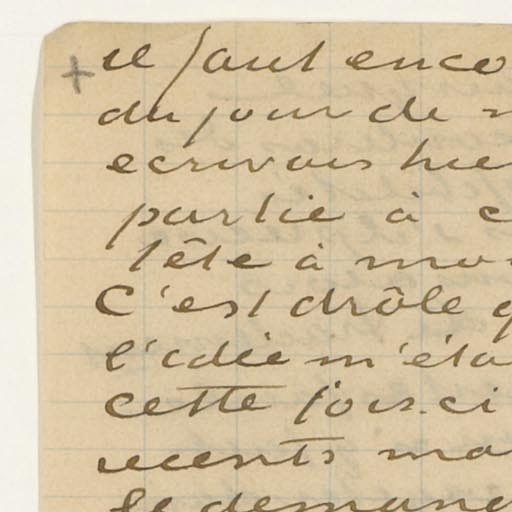 il faut enco
du jour de
ecrivais hie
partie à c
tête à mo
C'est drôle q
l'idée m'éta
cette fois-ci
recents ma
Se demand